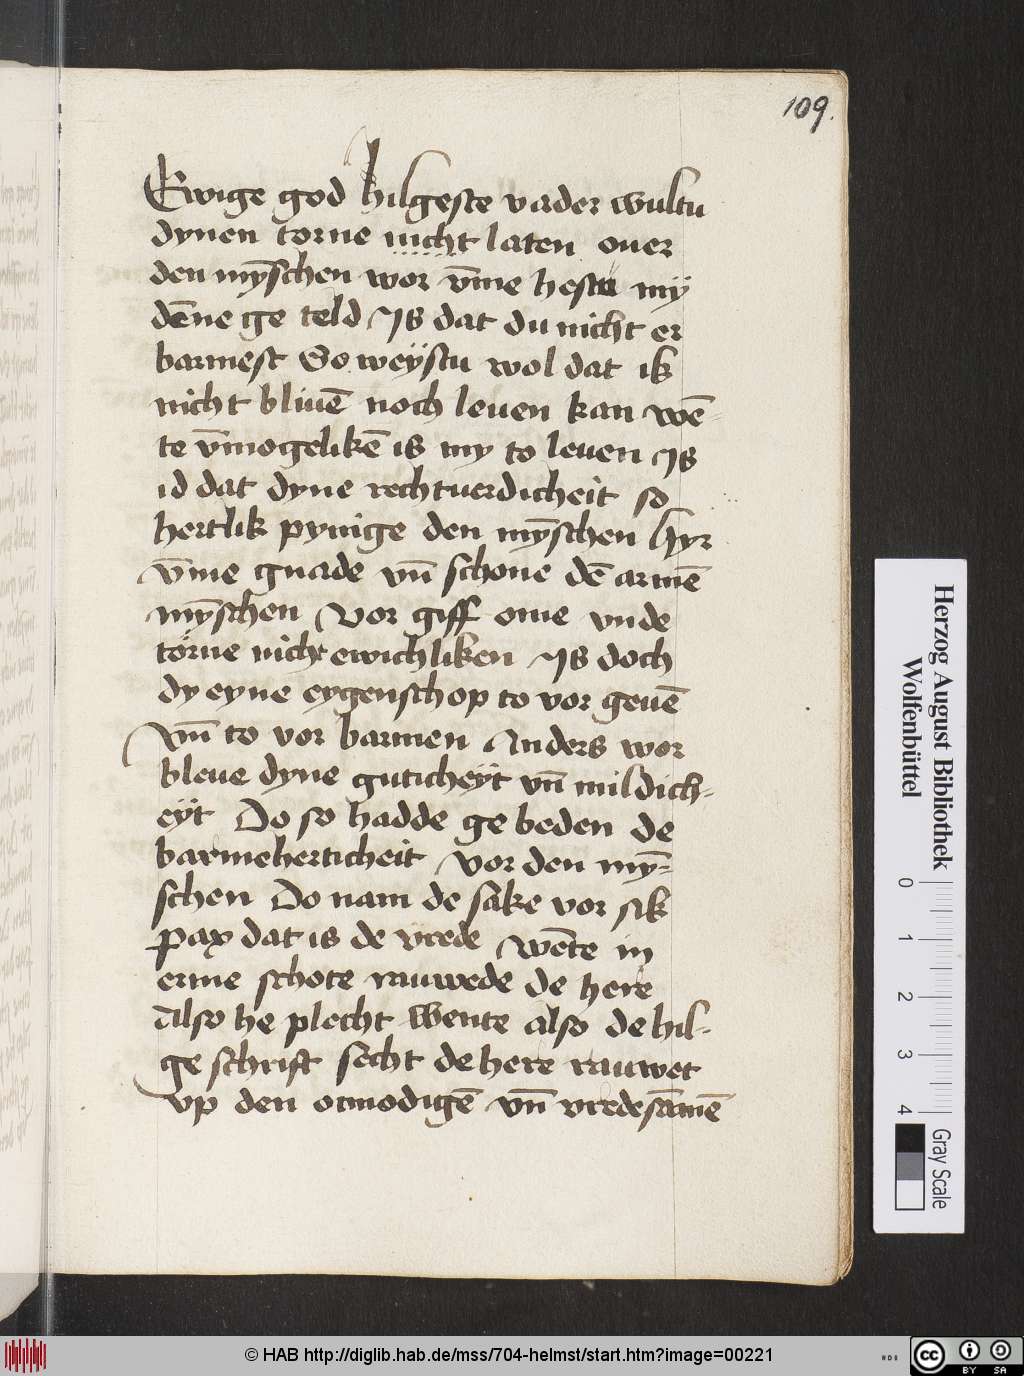 109.
Ewige god hilgeste vader wultu
dynen torne nicht laten ouer
den mȳschen wor v̄me hestu my
dēne ge teld Is dat du nicht er
barmest So weÿstu wol dat ik
nicht bliuē noch leuen kan wē-
te v̄mogelikē is my to leuen Is
id dat dyne rechtuerdicheit so
hertlik pynige den mȳschen hyr
v̄me gnade vn̄ schone dē armē
mȳschen vor giff ome vnde
törne nicht ewichliken Is doch
dy eyne eygenschop to vor geuē
vn̄ to vor barmen Anders wor
bleue dyne guticheÿt vn̄ mildich-
eÿt Do so hadde ge beden de
barmeherticheit vor den mȳ-
schen Do nam de sake vor sik
pax dat is de vrede wēte in
erme schote rauwede de here
Also he plecht wente also de hil-
ge schrift secht de here rauwet
vp den otmodigē vn̄ vredesāmē
Herzog August Bibliothek
Wolfenbüttel
0 1 2 3 4
Gray Scale
© HAB http://diglib.hab.de/mss/704-helmst/start.htm?image=00221
cc BY SA